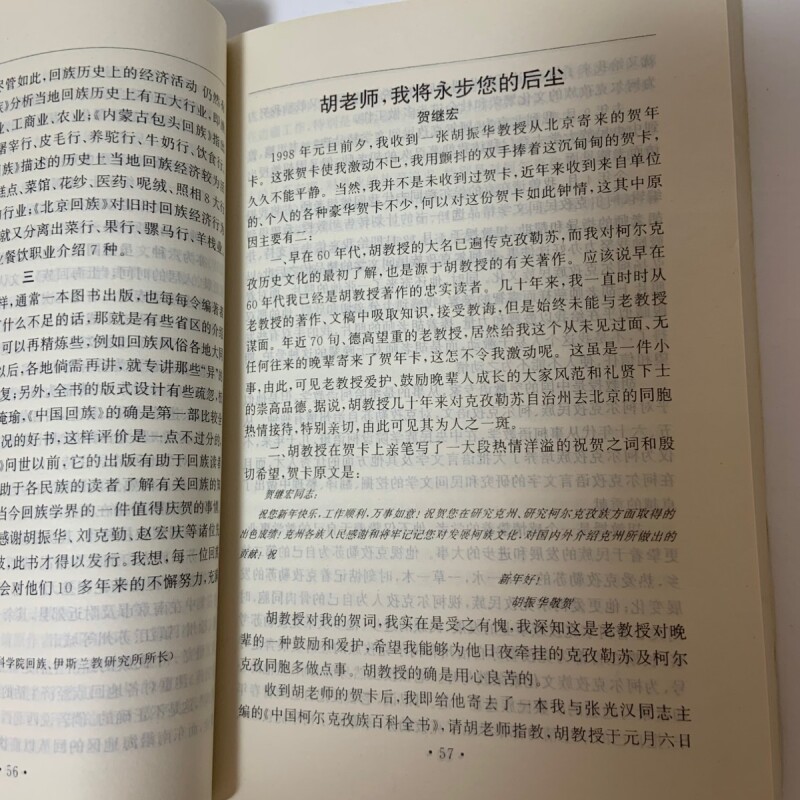 尽管如此,回族历史上的经济活动 仍然
》分析当地回族历史上有五大行业,即
、工商业、农业;《内蒙古包头回族》指
屠宰行、皮毛行、养驼行、牛奶行、饮食
》描述的历史上当地回族经济较为
糕点、菜馆、花纱、医药、呢绒、照相8大
行业;《北京回族》对旧时回族经济行
就又分离出菜行、果行、骡马行、羊栈业
餐饮职业介绍7种。
三
样,通常一本图书出版,也每每令编著
什么不足的话,那就是有些省区的介
可以再精炼些,例如回族风俗各地大同
以后,各地倘需再讲,就专讲那些“异”的
复;另外,全书的版式设计有些疏忽,
掩瑜,《中国回族》的确是第一部比较
况的好书,这样评价是一点不过分的
》问世以前,它的出版有助于回族读
助于各民族的读者了解有关回族的知
当今回族学界的一件值得庆贺的事情
感谢胡振华、刘克勤、赵宏庆等诸位
,此书才得以发行。我想,每一位回
会对他们10多年来的不懈努力,充
科学院回族、伊斯兰教研究所所长)
·56·
胡老师,我将永步您的后尘
贺继宏
1998年元旦前夕,我收到一张胡振华教授从北京寄来的贺年
卡。这张贺卡使我激动不已,我用颤抖的双手捧着这沉甸甸的贺卡
久久不能平静。当然,我并不是未收到过贺卡,近年来收到来自单位
的、个人的各种豪华贺卡不少,何以对这份贺卡如此钟情,这其中原
因主要有二:
一、早在60年代,胡教授的大名已遍传克孜勒苏,而我对柯尔克
孜历史文化的最初了解,也是源于胡教授的有关著作。应该说早在
60年代我已经是胡教授著作的忠实读者。几十年来,我一直时时从
老教授的著作、文稿中吸取知识,接受教诲,但是始终未能与老教授
谋面。年近70旬、德高望重的老教授,居然给我这个从未见过面、无
任何往来的晚辈寄来了贺年卡,这怎不令我激动呢。这虽是一件小
事,由此,可见老教授爱护、鼓励晚辈人成长的大家风范和礼贤下士
的崇高品德。据说,胡教授几十年来对克孜勒苏自治州去北京的同胞
热情接待,特别亲切,由此可见其为人之一斑。
二、胡教授在贺卡上亲笔写了一大段热情洋溢的祝贺之词和殷
切希望,贺卡原文是:
贺继宏同志:
祝您新年快乐,工作顺利,万事如意!祝贺您在研究克州、研究柯尔克孜方面取得的
出色成绩!克州各族人民感谢和将牢记记您对发展柯族文化、对国内外介绍克州所做出的
贡献!祝
新年好!
胡振华敬贺
胡教授对我的贺词,我实在是受之有愧,我深知这是老教授对晚
辈的一种鼓励和爱护,希望我能够为他日夜牵挂的克孜勒苏及柯尔
克孜同胞多做点事。胡教授的确是用心良苦的。
收到胡老师的贺卡后,我即给他寄去了一本我与张光汉同志主
编的《中国柯尔克孜族百科全书》,请胡老师指教,胡教授于元月六日
·57·